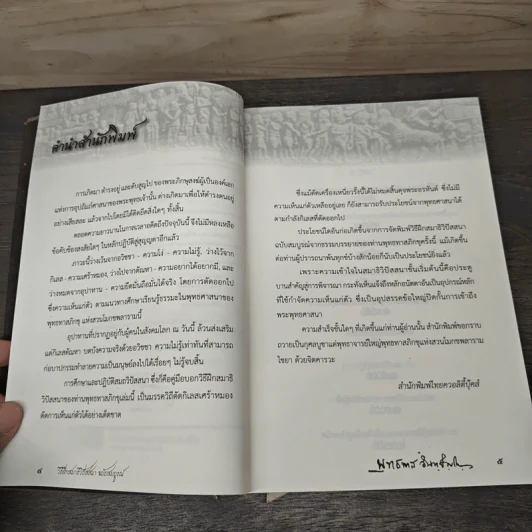 คำนำสำนักพิมพ์
การเกิดมา ดำรงอยู่ และดับสูญไป ของพระภิกษุสงฆ์ผู้เป็นองค์เอก
แห่งการอุปถัมภ์ศาสนาของพระพุทธเจ้านั้น ต่างเกิดมาเพื่อให้ดำรงตนอยู่
อย่างเสียสละ แล้วจากไปโดยมิได้ติดยึดสิ่งใดๆ ทั้งสิ้น
ตลอดความยาวนานในกาลเวลาอดีตถึงปัจจุบันนี้ จึงไม่มีหลงเหลือ
ข้อคับข้องสงสัยใดๆ ในหลักปฏิบัติสู่สุญญตาอีกแล้ว
ภาวะนี้ว่างเว้นจากอวิชชา - ความโง่ - ความไม่รู้, ว่างไว้จาก
กิเลส - ความเศร้าหมอง, ว่างไปจากตัณหา - ความอยากได้อยากมี, และ
ว่างหมดจากอุปาทาน - ความยึดมั่นถือมั่นได้จริง โดยการตัดออกไป
ซึ่งความเห็นแก่ตัว ตามแนวทางศึกษาเรียนรู้ธรรมะในพุทธศาสนาของ
พุทธทาสภิกขุ แห่งสวนโมกขพลารามนี้
อุปาทานที่ปรากฏอยู่กับผู้คนในสังคมโลก ณ วันนี้ ล้วนส่งเสริม
แต่กิเลสตัณหา บดบังความจริงด้วยอวิชชา ความไม่รู้เท่าทันที่สามารถ
ก่อบาปกรรมทำลายความเป็นมนุษย์ลงไปได้เรื่อยๆ ไม่รู้จบสิ้น
การศึกษาและปฏิบัติสมถวิปัสสนา ซึ่งก็คือคู่มือบอกวิธีฝึกสมาธิ
วิปัสสนาของท่านพุทธทาสภิกขุเล่มนี้ เป็นมรรควิถีดัดกิเลสเศร้าหมอง
ตัดการเห็นแก่ตัวได้อย่างเด็ดขาด
๘ วิธีฝึกสมาธิวิปัสสนา ฉบับสมบูรณ์
ซึ่งแม้ตัดเครื่องเหนี่ยวรั้งนี้ได้ไม่หมดสิ้นดุจพระอรหันต์ ซึ่งไม่มี
ความเห็นแก่ตัวเหลืออยู่เลย ก็ยังสามารถรับประโยชน์จากพุทธศาสนาได้
ตามกำลังกิเลสที่ตัดออกไป
ประโยชน์ใดอันก่อเกิดขึ้นจากการจัดพิมพ์วิธีฝึกสมาธิวิปัสสนา
ฉบับสมบูรณ์จากธรรมบรรยายของท่านพุทธทาสภิกขุครั้งนี้ แม้เกิดขึ้น
ต่อท่านผู้ปรารถนาพ้นทุกข์บ้างสักน้อยก็นับเป็นประโยชน์ยิ่งแล้ว
เพราะความเข้าใจในสมาธิวิปัสสนาขั้นเริ่มต้นนี้คือประตู
บานสำคัญสู่การพิจารณา กระทั่งเห็นแจ้งถึงหลักอนัตตาอันเป็นอุปกรณ์หลัก
ที่ใช้กำจัดความเห็นแก่ตัว ซึ่งเป็นอุปสรรคข้อใหญ่ปิดกั้นการเข้าถึง
พระพุทธศาสนา
ความสำเร็จขั้นใดๆ ที่เกิดขึ้นแก่ท่านผู้อ่านนั้น สำนักพิมพ์ขอกราบ
ถวายเป็นกุศลบูชาแด่พุทธาจารย์ใหญ่พุทธทาสภิกขุแห่งสวนโมกขพลาราม
ไชยา ด้วยจิตคารวะ
สำนักพิมพ์ไทยควอลิตี้บุ๊คส์
๙